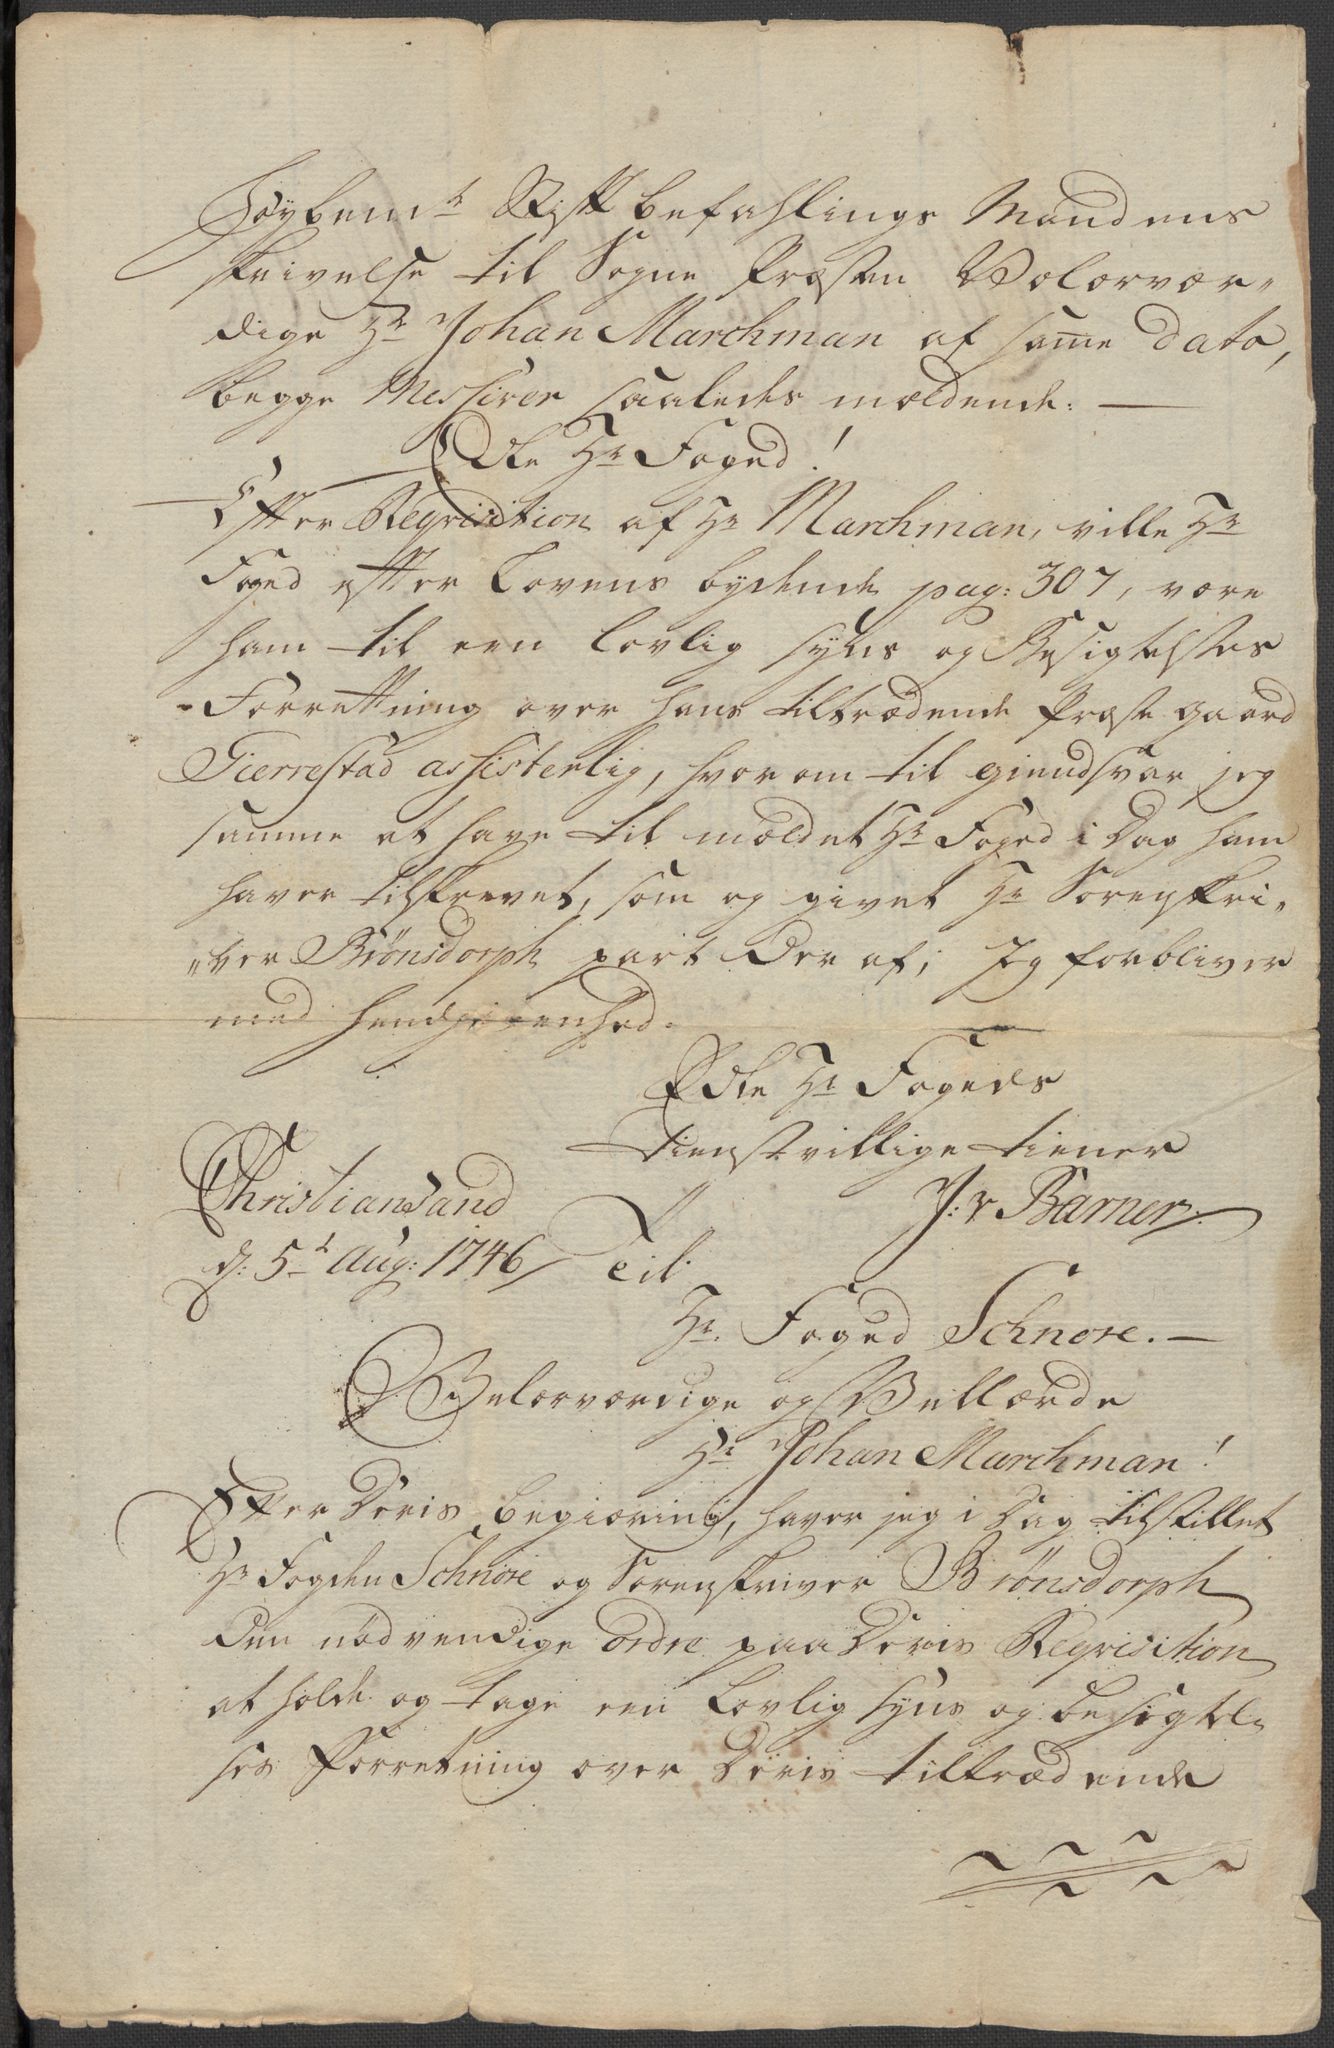 Høybemte Stiftbefahlings Mandens
skrivelse til Sogne Præsten Velærvær„
dige Hr Johan Marchman af same dato,
begge Messiver saaledes meldende. —
Edle Hr Foged!
Efter Reqvisition af Hr Marchman, ville Hr
Foged efter Lovens bydende pag: 307, være
ham til een lovlig syns og Besigtelses
-Forrettning over hans tiltrædende Præstegaard
Gierrestad assisterlig, hvorom til giendsvar jeg
samme at have tilmeldet Hr Foged i Dag ham
haver tilskrevet, som og givet Hr Sorenskri„
„ver Brönsdorph part der af; Jeg forbliver
med hengivenhed.
Edle Hr Fogeds
tienstvillige tiener
Christiansand J: v Barner.
d: 5t Aug: 1746 Til
Hr. Foged Schnore. —
Velærværdige og Vellærde
Hr Johan Marchman!
Efter Deris begiæring, haver jeg i Dag tilstillet
Hr Fogden Schnore og Sorenskriver Brönsdorph
den nødvendige ordre paa Deris Reqvisition
at holde og tage een Lovlig syns og besigtel„
ses Forretning over Deris tiltrædende